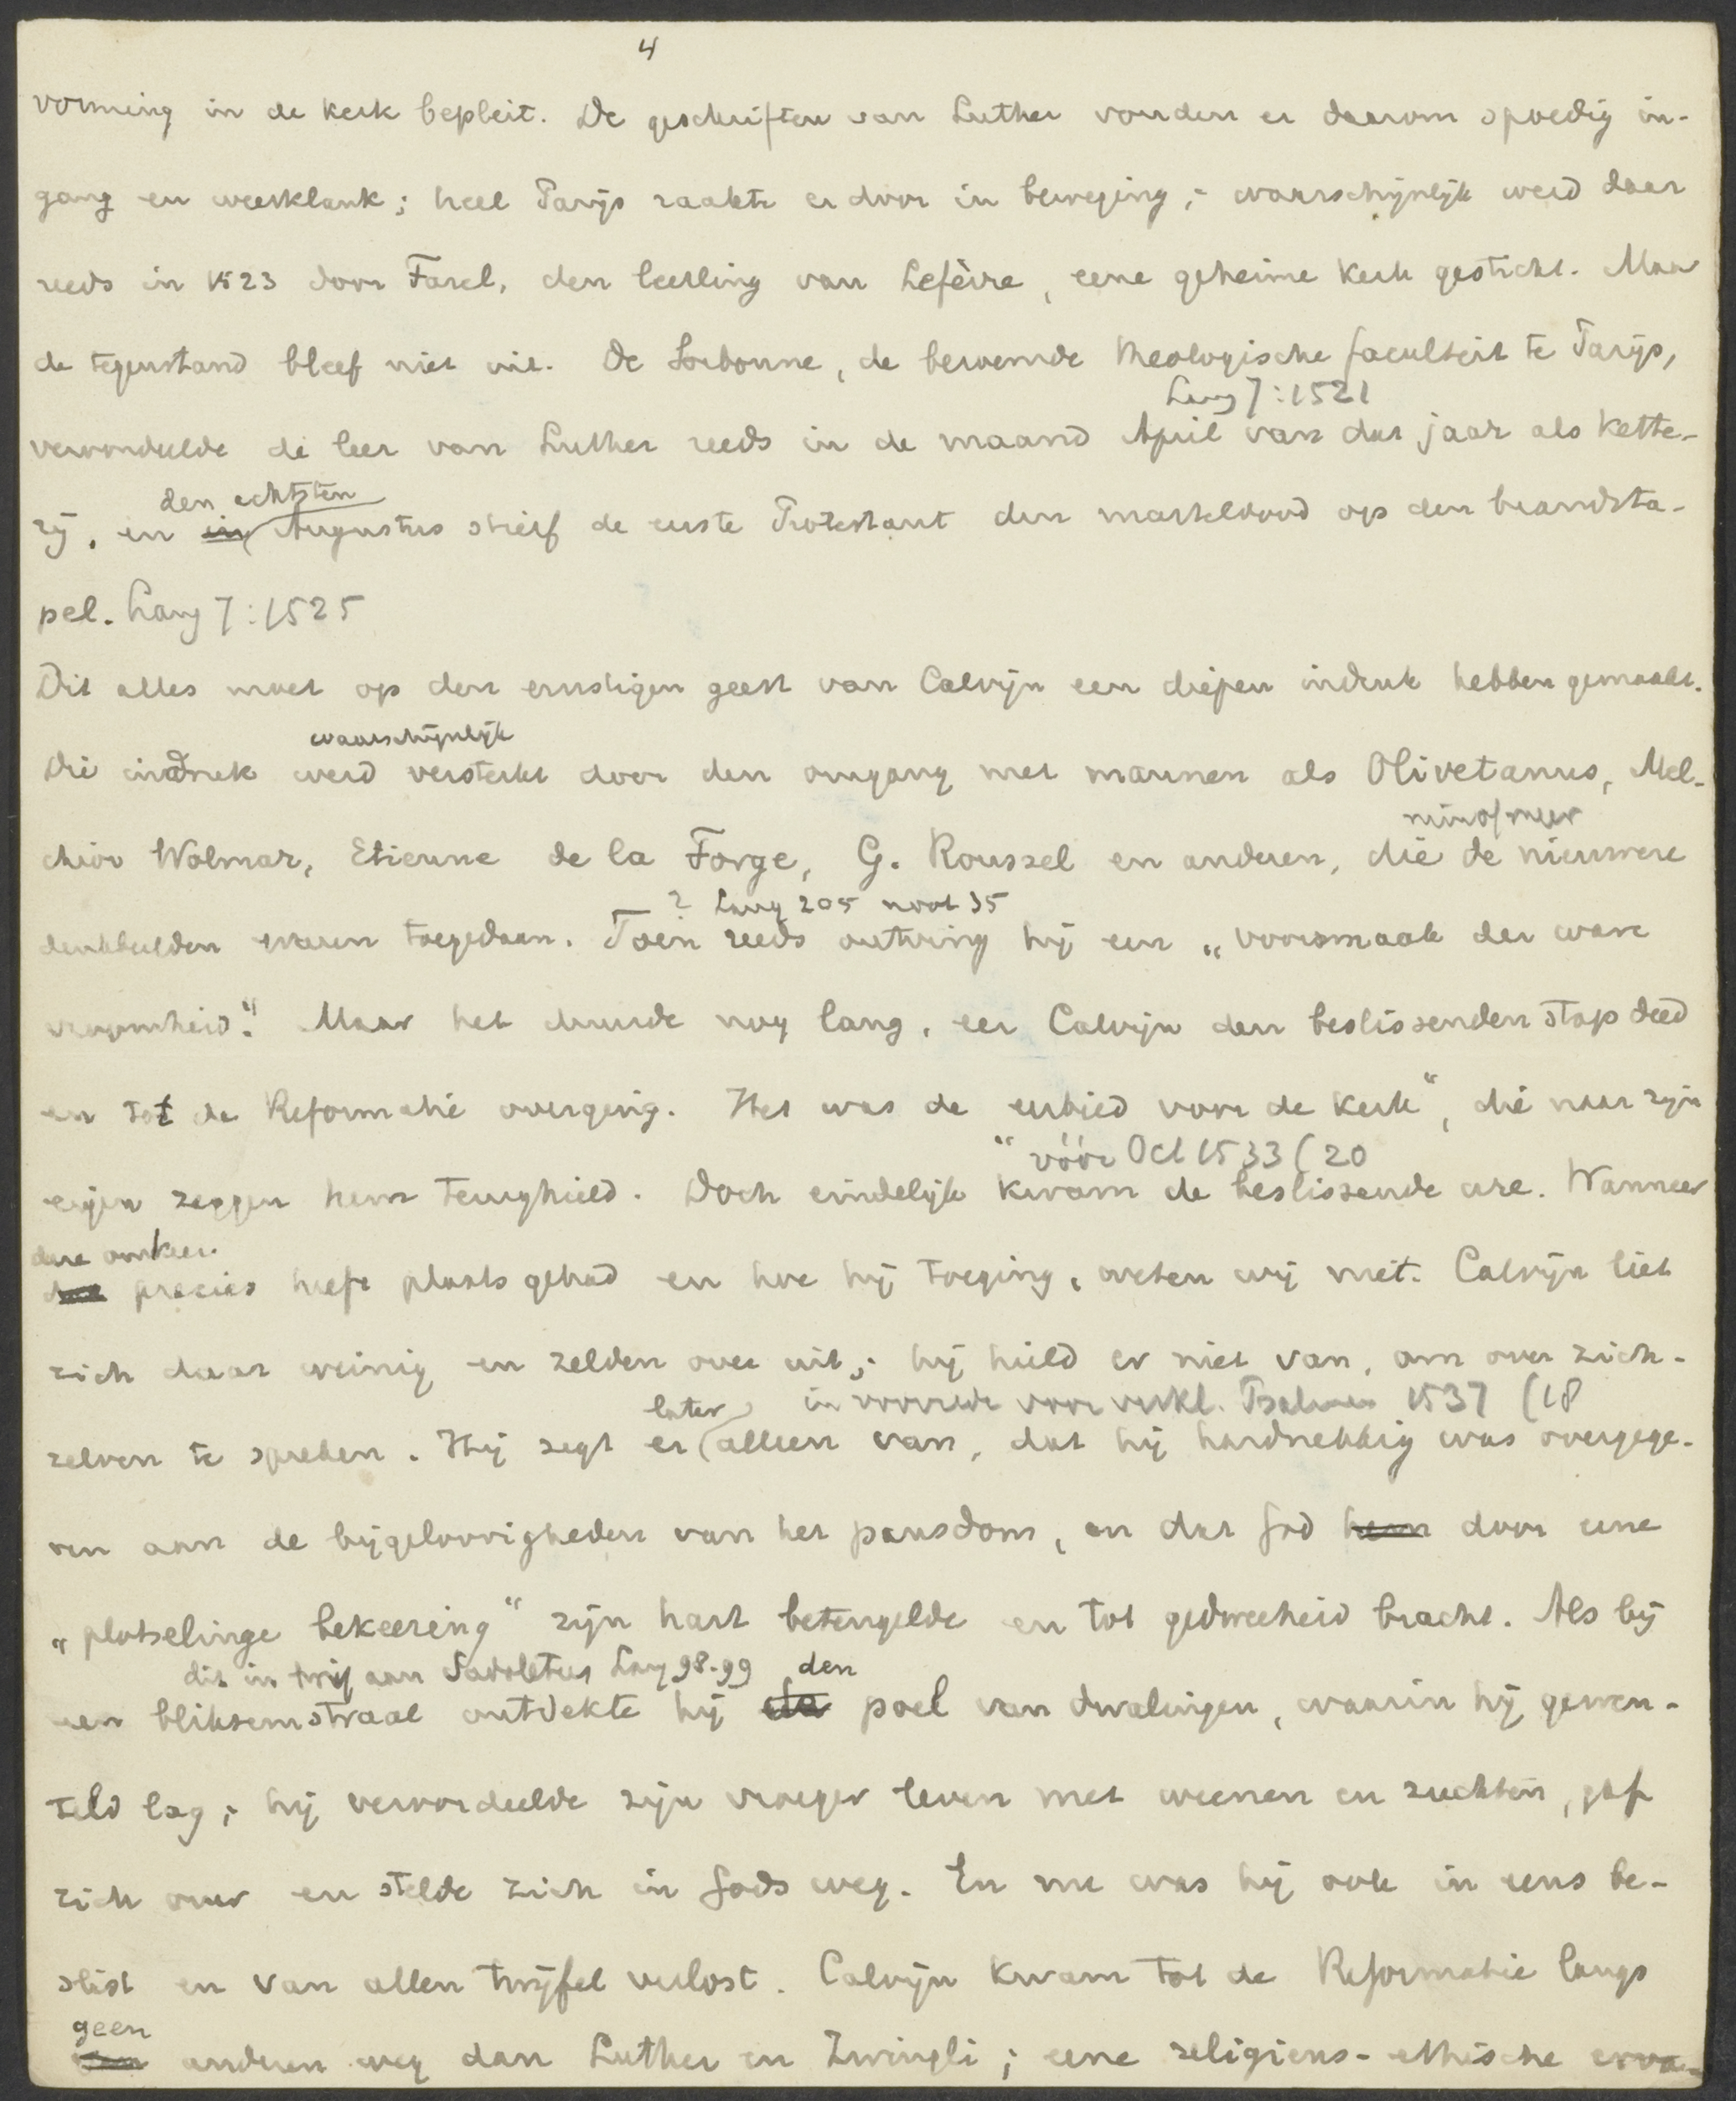 4
vorming in de kerk bepleit. De geschriften van Luther vonden er daarom spoedig in-
gang en weerklank; heel Parijs raakte er door in beweging; waarschijnlijk werd daar
reeds in 1523 door Farel, den leerling van Lefèvre, eene geheime kerk gesticht. Maar
de tegenstand bleef niet uit. De Sorbonne, de beroemde theologische faculteit te Parijs,
Lang 7: 1521
veroordeelde de leer van Luther reeds in de maand April van dat jaar als kette-
den achtsten
rij, en in Augustus stierf de eerste Protestant den marteldood op den brandsta-
pel. Lang 7: 1525
Dit alles moet op den ernstigen geest van Calvijn een diepen indruk hebben gemaakt.
waarschijnlijk
Die indruk werd versterkt door den omgang met mannen als Olivetanus, Mel-
min of meer
chior Wolmar, Etienne de la Forge, G. Roussel en anderen, die de nieuwere
? Lang 205 noot 35
denkbeelden waren toegedaan. Toen reeds ontving hij een „voorsmaak der ware
vroomheid". Maar het duurde nog lang, eer Calvijn den beslissenden stap deed
en tot de Reformatie overging. Het was de „eerbied voor de kerk", die naar zijn
vóór Oct 1533 (20
eigen zeggen hem terughield. Doch eindelijk kwam de beslissende ure. Wanneer
deze omkeer
deze precies heeft plaats gehad en hoe hij toeging, weten wij niet. Calvijn liet
zich daar weinig en zelden over uit; hij hield er niet van, om over zich-
later in voorrede voor verkl. Psalmen 1537 (18
zelven te spreken. Hij zegt er alleen van, dat hij hardnekkig was overgege-
ven aan de bijgeloovigheden van het pausdom, en dat God hem door eene
„plotselinge bekeering" zijn hart beteugelde en tot gedweeheid bracht. Als bij
dit in brief aan Sadoletus Lang 98-99 den
een bliksemstraal ontdekte hij de poel van dwalingen, waarin hij gewen-
teld lag; hij veroordeelde zijn vroeger leven met weenen en zuchten, gaf
zich over en stelde zich in Gods weg. En nu was hij ook in eens be-
slist en van allen twijfel verlost. Calvijn kwam tot de Reformatie langs
geen
een anderen weg dan Luther en Zwingli; eene religieus-ethische erva-